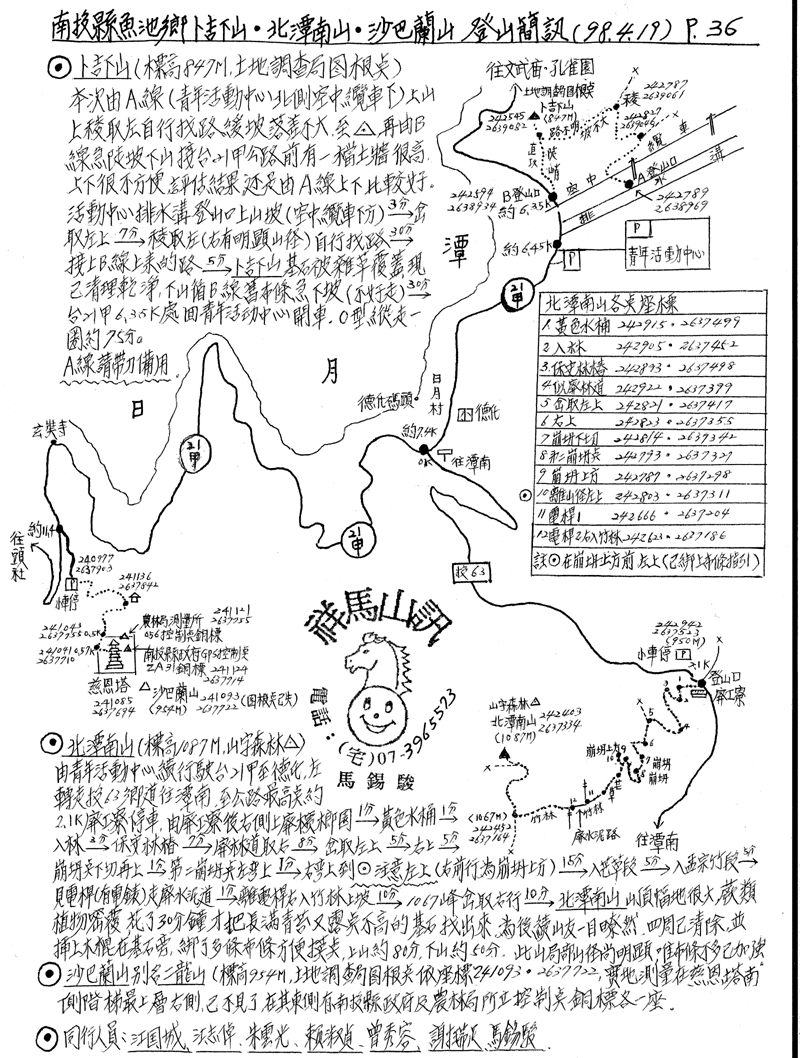 南投縣魚池鄉卜吉山·北潭南山·沙巴蘭山 登山簡訊(98.4.19) P.36
⊙卜吉山(標高847M,土地調查局図根点)
本次由A線(青年活動中心北側空中纜車下)上山
上稜取左自行找路、緩坡落差不大,至△,再由B
線急陡坡下山接台21甲公路前有一檔土牆很高,
上下很不方便,評估結果還是由A線上下比較好。
活動中心排水溝登山口上山坡(空中纜車下方)3分→岔
取左上 7分→稜取左(右有明顕山徑)自行找路 30分→
接上B線上來的路 5分→卜吉山基石被雜草覆蓋現
已清理乾淨,下山循B線舊布條急下坡(不好走)30分→
台21甲6.35K處由青年活動中心開車。O型縱走一
圈約75分。
A線請帶刀備用
往文武廟·孔雀園
土地調查局図根点
卜吉山
(847M)
242545
2639082
路不明
坡不大
稜
242787
2639061
242827
2639046
纜車
空中
排水溝
A登山口
242789
2638969
直攻
陡峭
B登山口
約6.35K
242594
2638934
約6.45K
P
P
青年活動中心
潭
月
日
21甲
21甲
21甲
德化碼頭
日月村
德化
約7.4K
0K
往潭南
投63
玄奘寺
約11.4
往頭社
P
小車停
240977
2637903
241136
2637842
241043
2637755
0.5K
241041
2637710
0.57K
農林局測量所
056控制点銅標
241121
2637755
南投縣政府GPS控制点
ZA31銅標
241124
2637714
慈恩塔
241085
2637694
沙巴蘭山
(954M)
241093
2637722
(図根点已失)
北潭南山各点座標
1.黃色水桶 242915·2637499
2入林 242905·2637452
3.保安林樁 242893·2637498
4似廢林道 242922·2637399
5岔取左上 242821·2637417
6右上 242823·2637355
7崩坍下切 242814·2637342
8第二崩坍点 242793·2637327
9崩坍上方 242787·2637298
⊙10離山徑左上 242803·2637311
11電桿1 242666·2637204
12電桿2右入竹林 242623·2637186
註⊙在崩坍上方前左上(已綁上布條指引)
祥馬山訊
電話:(宅)07-3965573
馬錫駿
242942
2637523
(950M)
小車停 P
2.1K
登山口
廢工寮
山字森林△
北潭南山
(1087M)
242403
2637334
(1067M)
242452
2637164
竹林
竹林
廢水泥路
崩坍上方
崩坍
崩坍
往潭南
⊙北潭南山(標高1087M,山字森林△)
由青年活動中心續行駛台21甲至德化,左
轉走投63鄉道往潭南,至公路最高点約
2.1K廢工寮停車,由廢工寮後右側上廢檳榔園 1分→黃色水桶 1分→
入林 3分→保安林樁 7分→廢林道取右 8分→岔取左上 5分→右上 5分→
崩坍点下切再上 1分→第二崩坍点左彎上 1分→右彎上到⊙注意左上(右前行為崩坍上方) 15分→入芒草段 5分→入孟宗竹段 5分→
見電桿(有電錶)走廢水泥道 1分→離電桿右入竹林上坡 10分→1067峰岔取右行 10分→北潭南山山頂幅地很大,蕨類
植物密覆,花了30分鐘才把長滿青苔又露点不高的基石找出來,為後續山友一目瞭然,四周已清除,並
插上木棍在基石旁,綁了多條布條方便摸点,上山約80分,下山約50分。此山局部山徑尚明顕,唯布條不多已加強
⊙沙巴蘭山別名二龍山(標高954M,土地調查局図根点依座標241093·2637722,實地測量在慈恩塔南
側階梯最上層右側,已不見了在其東側有南投縣政府及農林局所立控制点銅標各一座.
⊙同行人員:江国城、汪志偉、朱雲光、賴淑貞、曾秀容、謝瑞欽、馬錫駿.